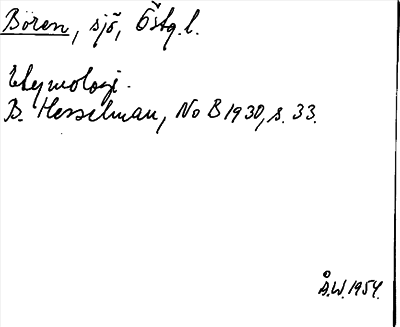 Bören, sjö, Östg.l.
Etymologi.
B. Hesselman, No B 1930, s. 33.
Å.W. 1954.